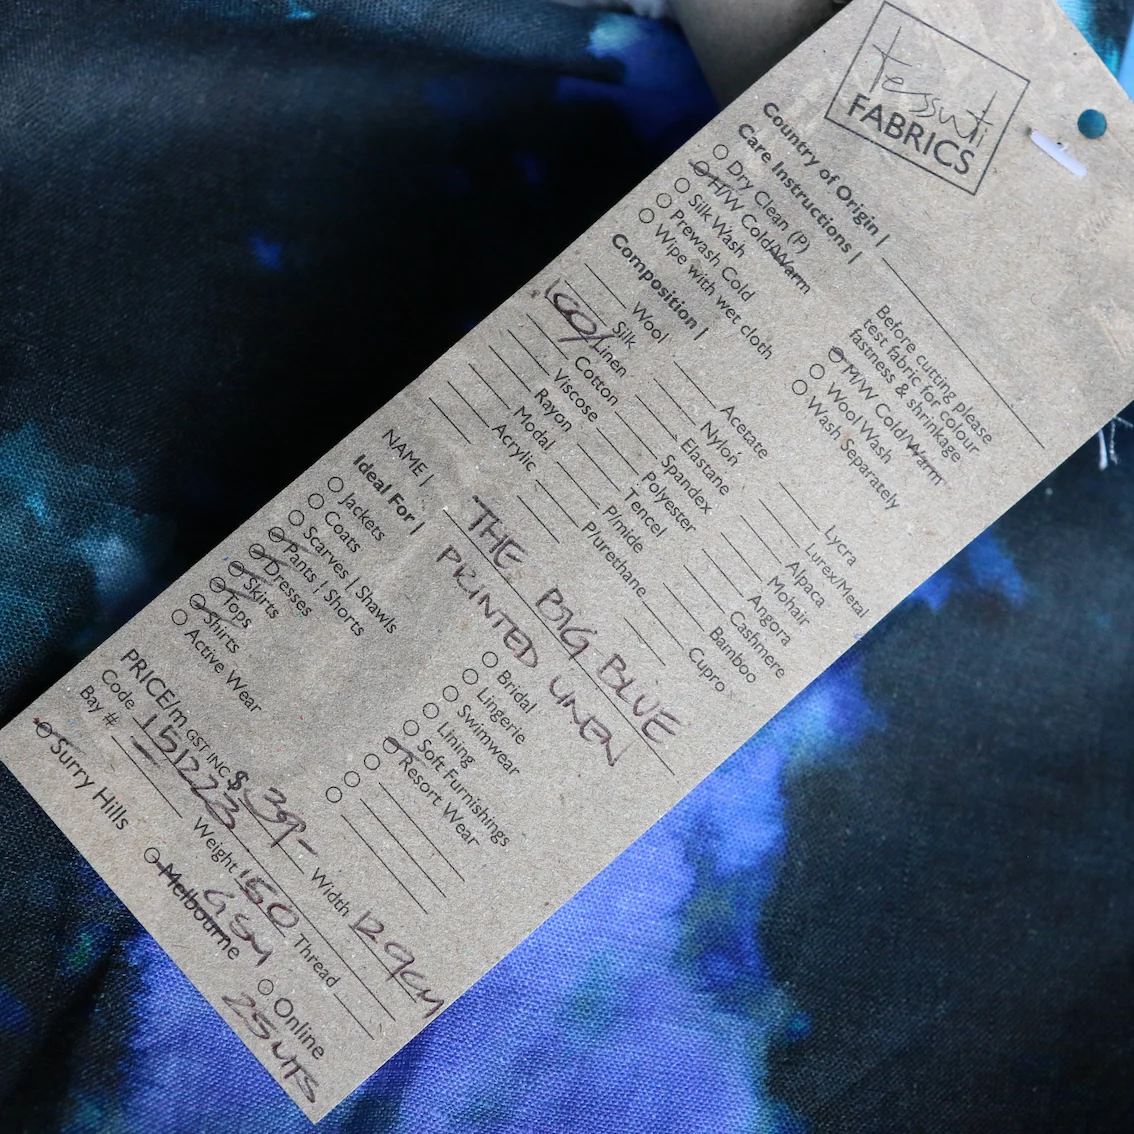 tessuti
FABRICS
Country of Origin |
Care Instructions |
Dry Clean (P)
H/W Cold/Warm
Silk Wash
Prewash Cold
Wipe with wet cloth
Before cutting please
test fabric for colour
fastness & shrinkage
M/W Cold/Warm
Wool Wash
Wash Separately
Composition |
Wool
Silk
100% Linen
Cotton
Viscose
Rayon
Modal
Acrylic
Acetate
Nylon
Elastane
Spandex
Polyester
Tencel
P/mide
P/urethane
Lycra
Lurex/Metal
Alpaca
Mohair
Angora
Cashmere
Bamboo
Cupro
NAME | THE BIG BLUE
PRINTED LINEN
Ideal For |
Jackets
Coats
Scarves | Shawls
Pants | Shorts
Dresses
Skirts
Tops
Shirts
Active Wear
Bridal
Lingerie
Swimwear
Lining
Soft Furnishings
Resort Wear
PRICE/m GST INC $ 39- Width 129CM
Code 151223 Weight 150 GSM Thread
Bay #
Surry Hills
Melbourne
Online
25 MTS